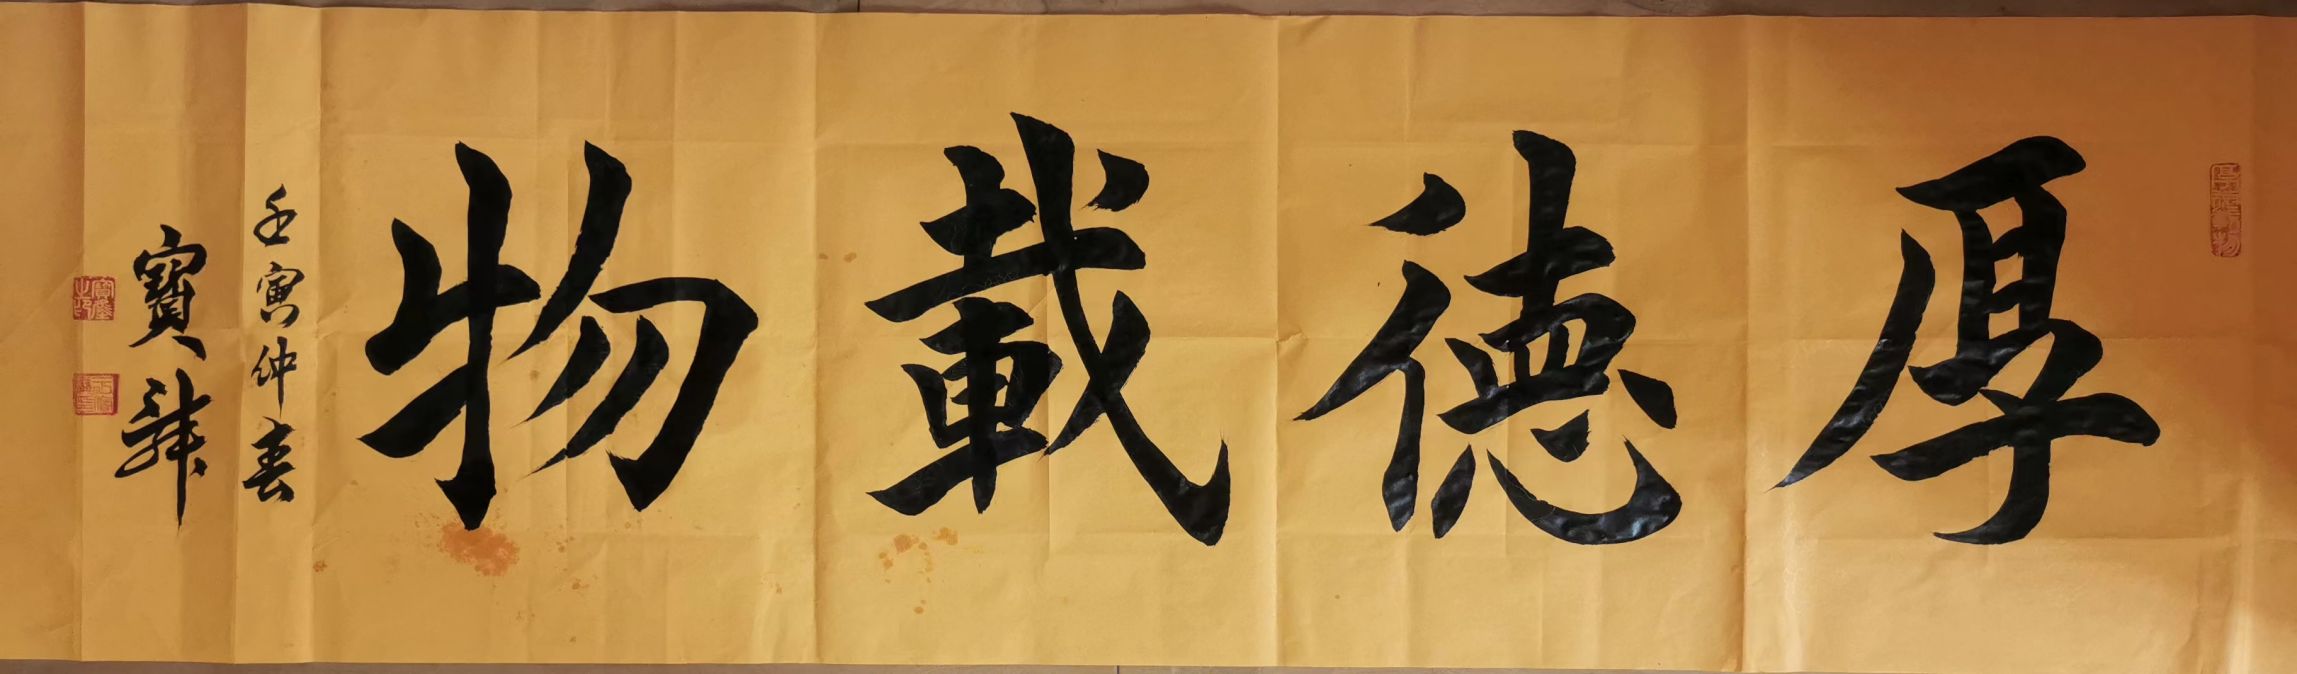 厚德載物
壬寅仲春
寶華